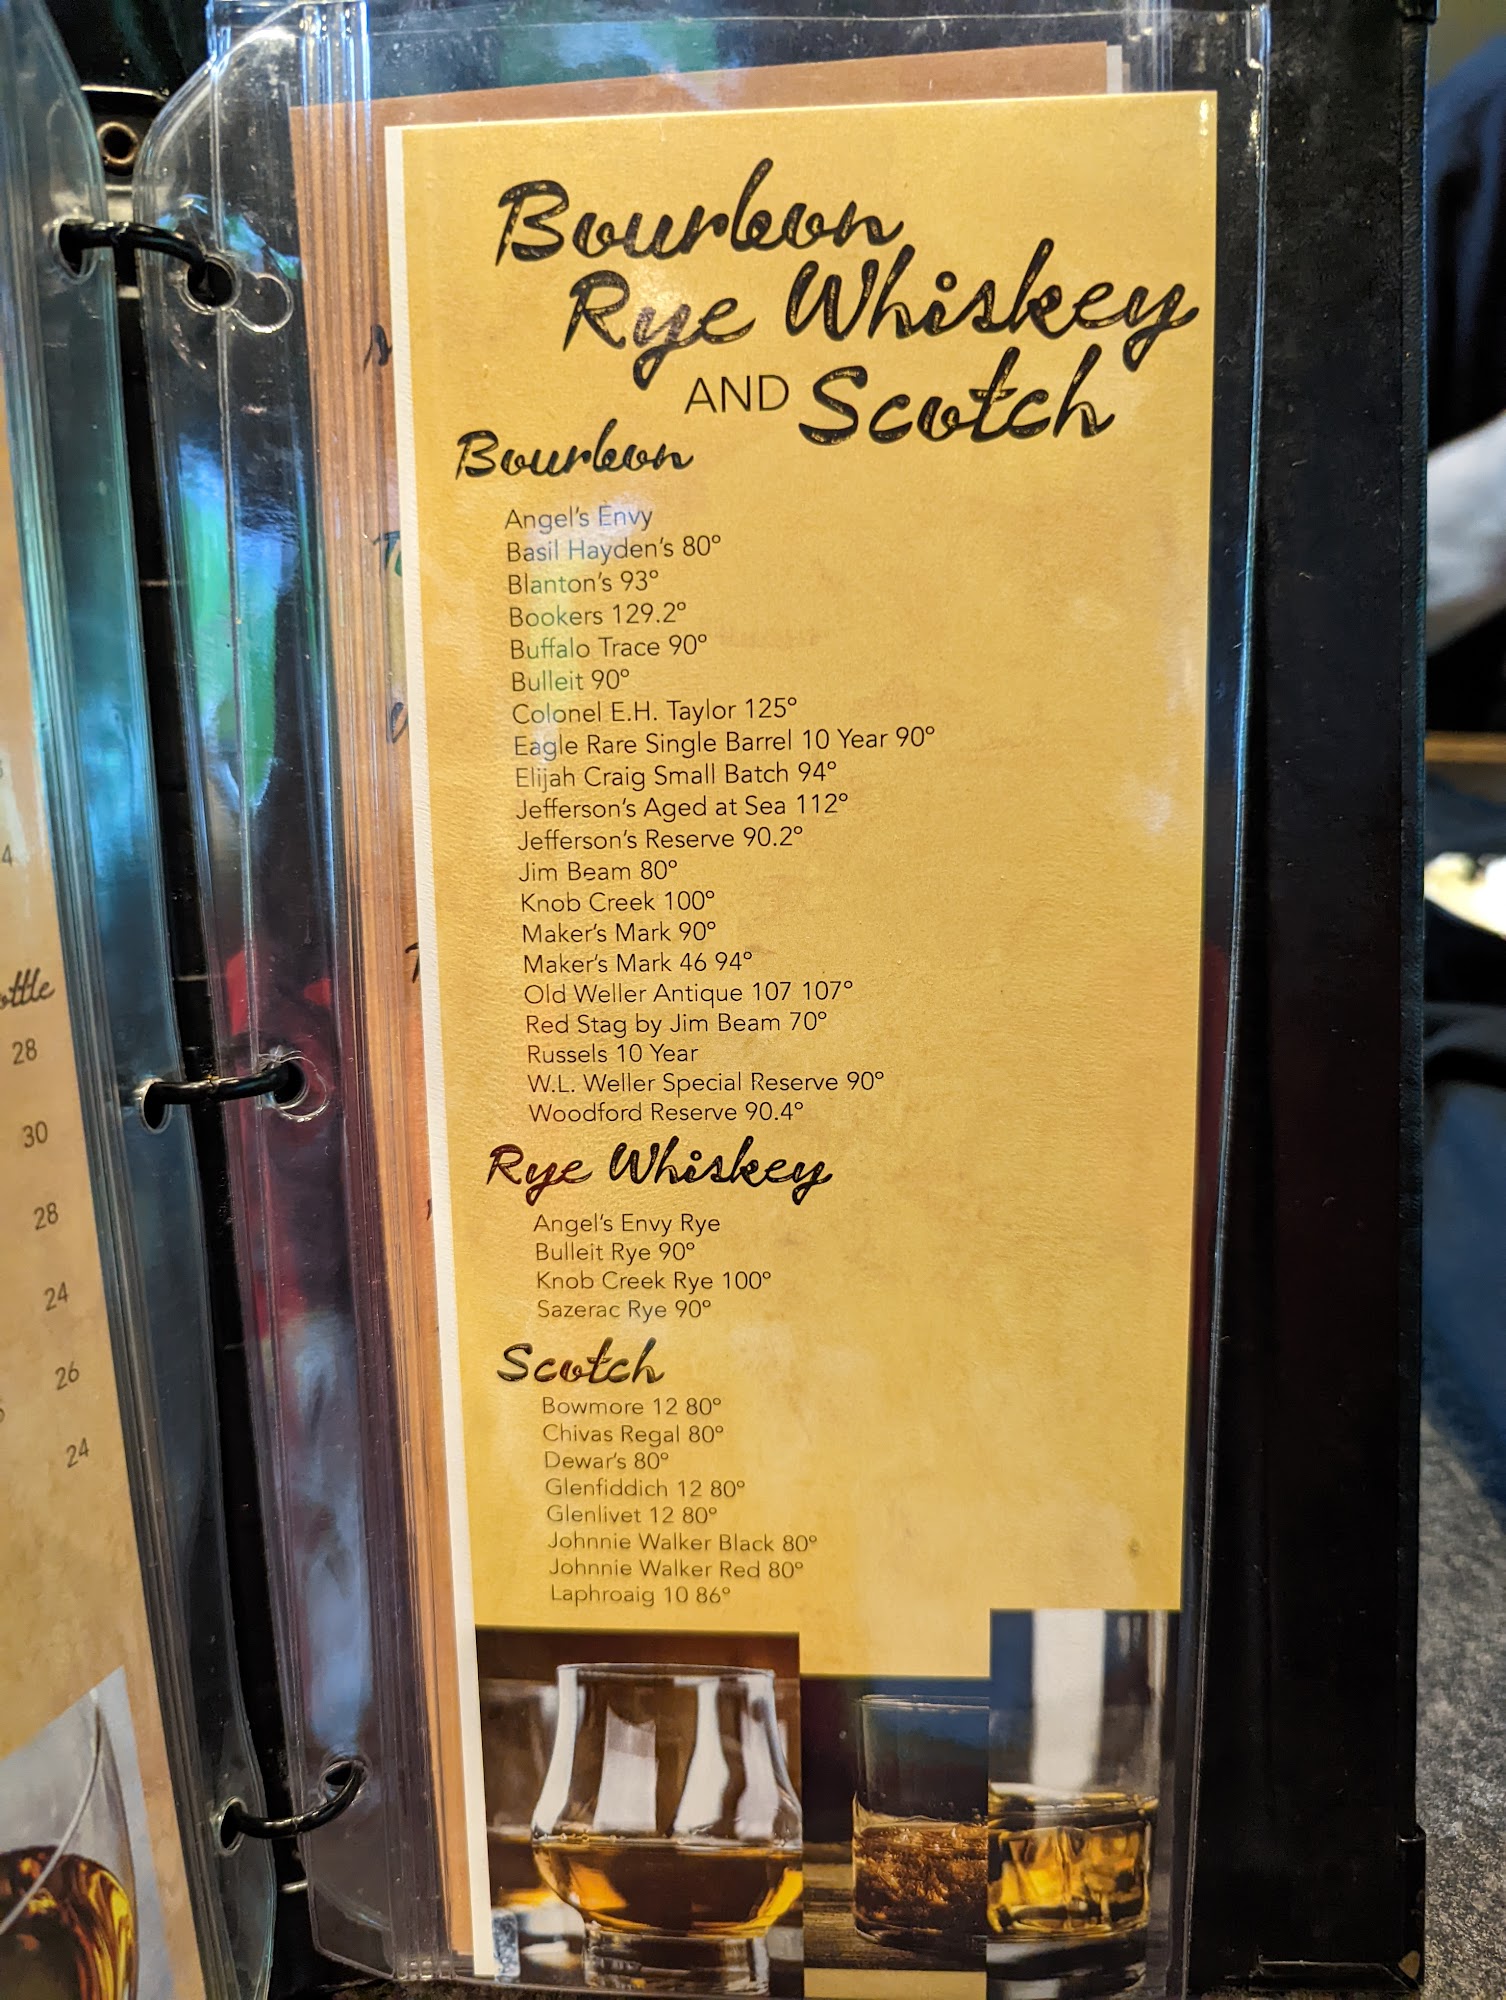 Bourbon
Rye Whiskey
AND Scotch
Bourbon
Angel's Envy
Basil Hayden's 80°
Blanton's 93°
Bookers 129.2°
Buffalo Trace 90°
Bulleit 90°
Colonel E.H. Taylor 125°
Eagle Rare Single Barrel 10 Year 90°
Elijah Craig Small Batch 94°
Jefferson's Aged at Sea 112°
Jefferson's Reserve 90.2°
Jim Beam 80°
Knob Creek 100°
Maker's Mark 90°
Maker's Mark 46 94°
Old Weller Antique 107 107°
Red Stag by Jim Beam 70°
Russels 10 Year
W.L. Weller Special Reserve 90°
Woodford Reserve 90.4°
Rye Whiskey
Angel's Envy Rye
Bulleit Rye 90°
Knob Creek Rye 100°
Sazerac Rye 90°
Scotch
Bowmore 12 80°
Chivas Regal 80°
Dewar's 80°
Glenfiddich 12 80°
Glenlivet 12 80°
Johnnie Walker Black 80°
Johnnie Walker Red 80°
Laphroaig 10 86°
28
30
28
24
26
24